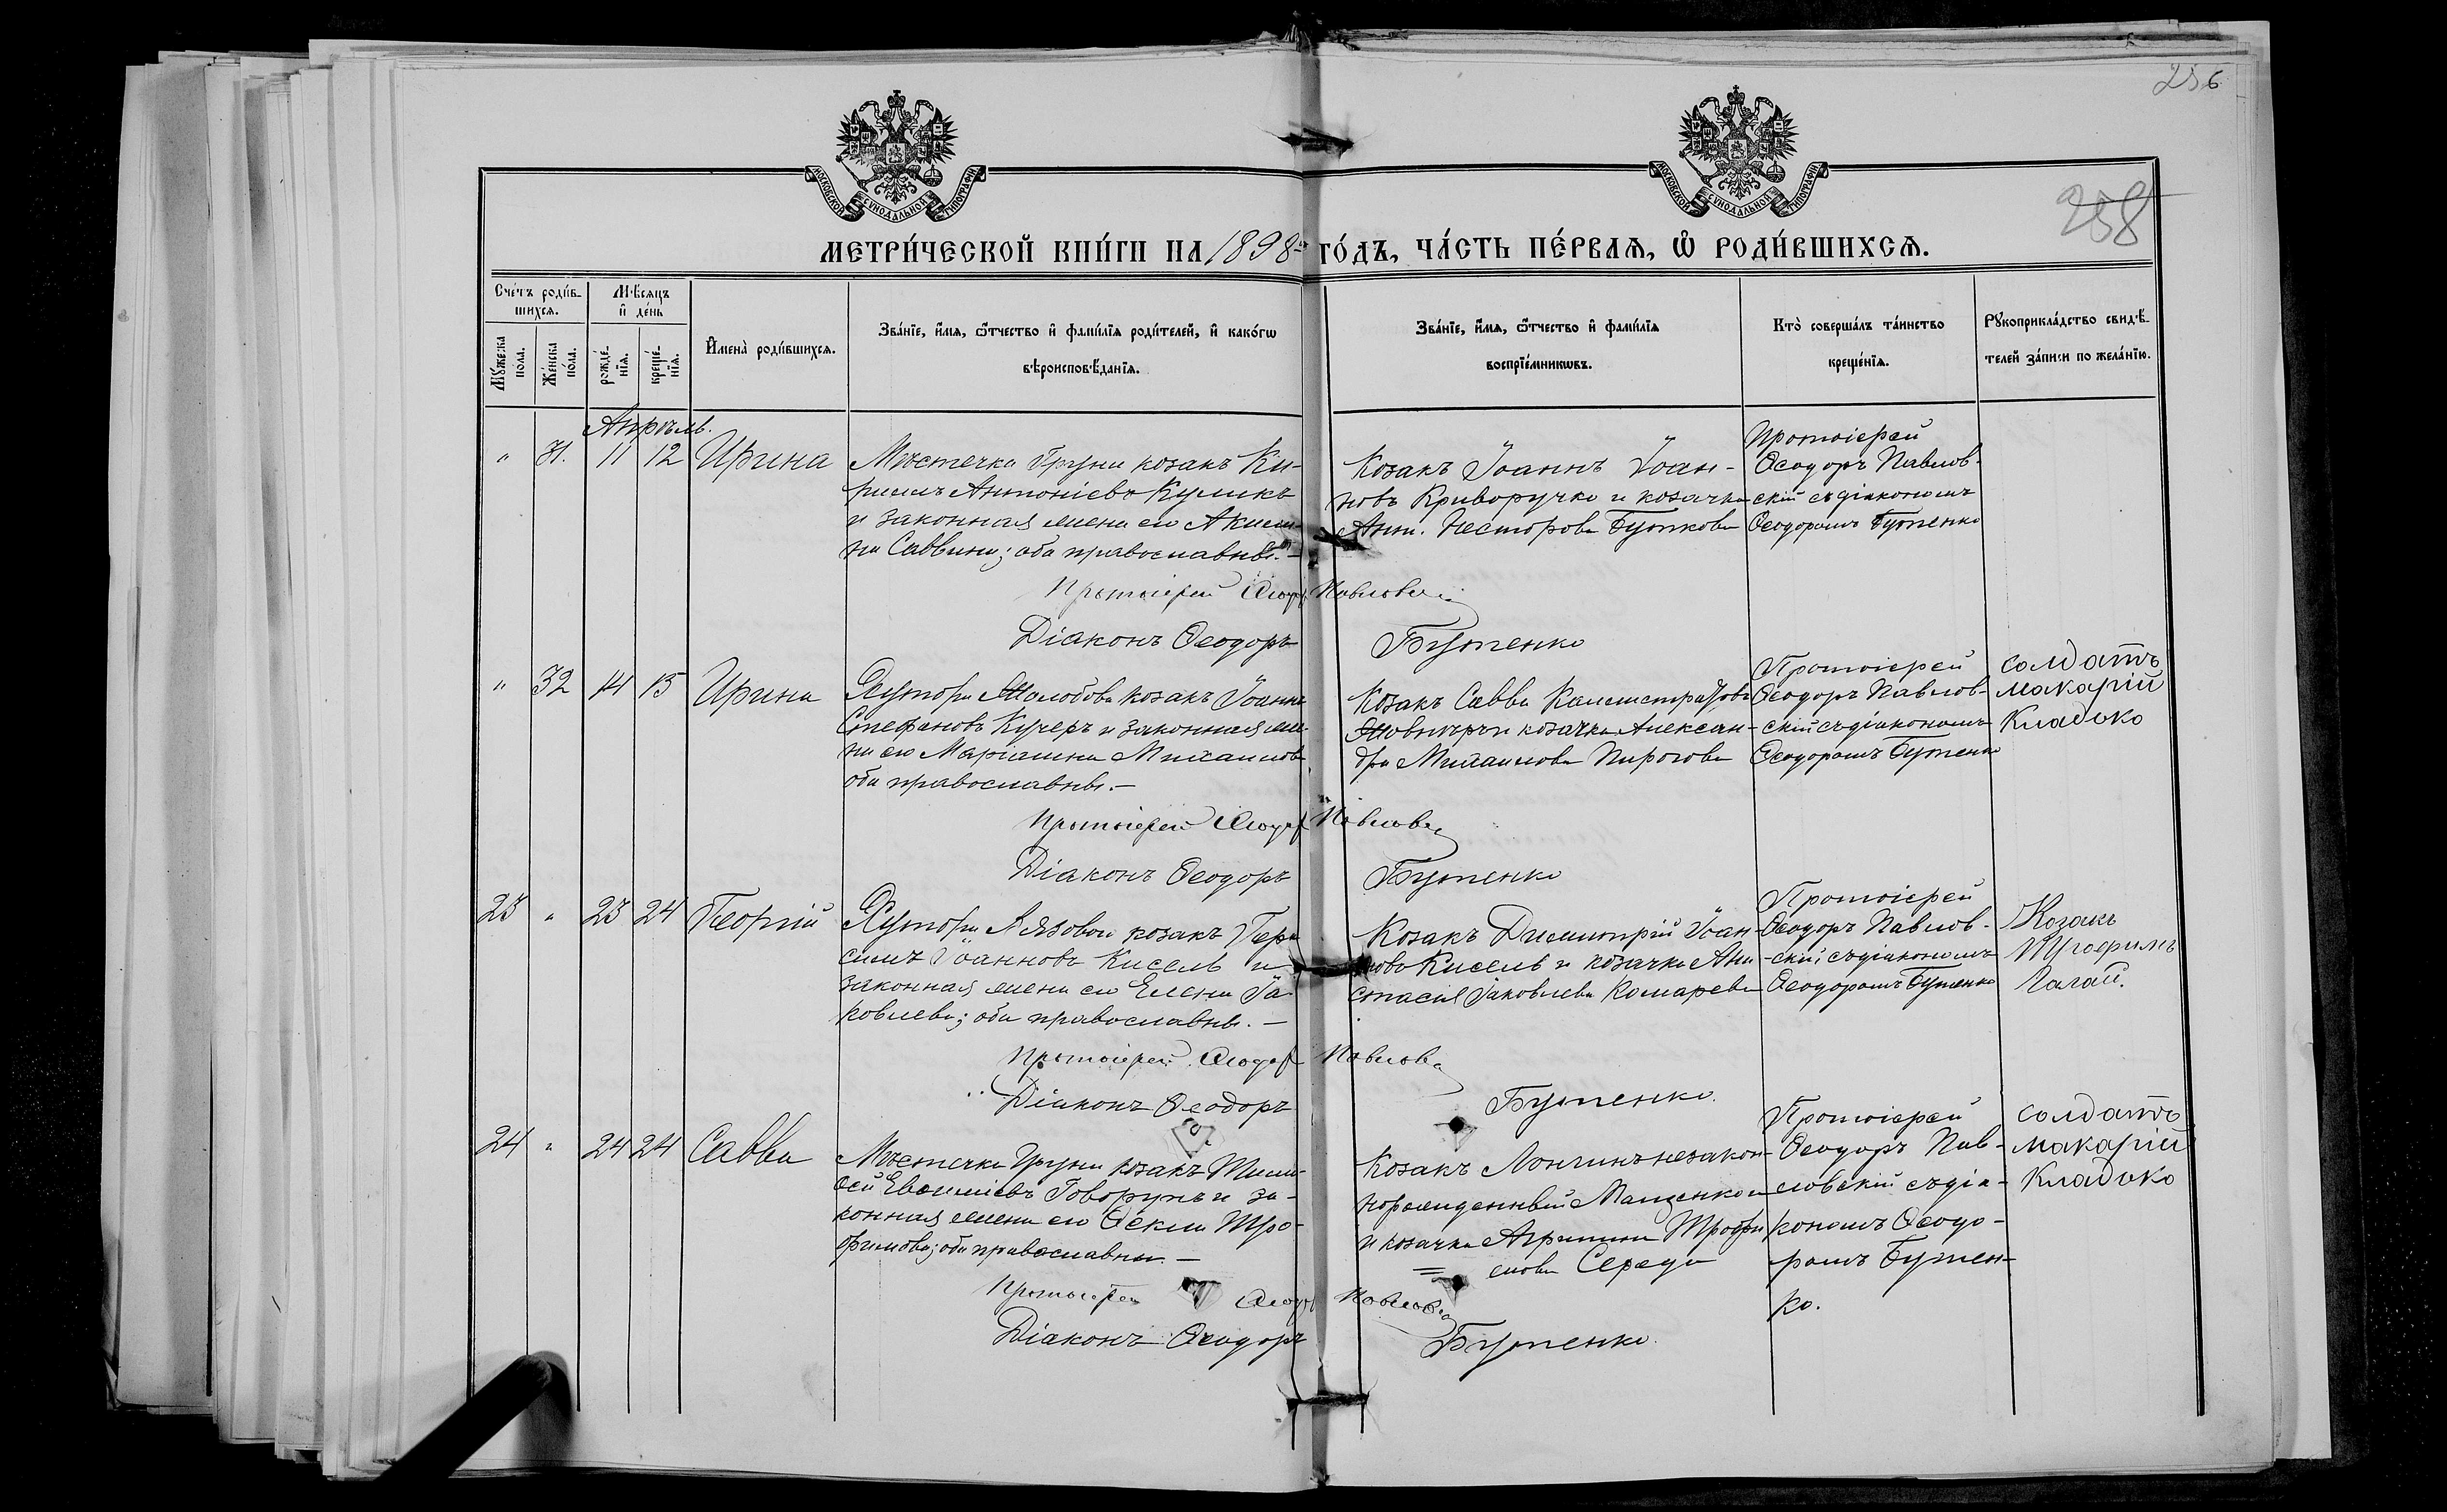 256
258
МОСКОВСКОЙ СѴНОДАЛЬНОЙ ТИПОГРАФІИ
МОСКОВСКОЙ СѴНОДАЛЬНОЙ ТИПОГРАФІИ
МЕТРИ́ЧЕСКОЙ КНИ́ГИ НА 1898 ГО́ДЪ, ЧА́СТЬ ПЕ́РВАѦ, Ѡ РОДИ́ВШИХСѦ.
Сче́тъ роди́в-
шихсѧ.
Мѣ́сѧцъ
и҆ де́нь
Мꙋ́жеска
по́ла.
Же́нска
по́ла.
рожде́-
нїѧ.
креще́-
нїѧ.
И҆мена̀ роди́вшихсѧ.
Зва́нїе, и҆́мѧ, ѻ҆́тчество и҆ фами́лїѧ роди́телей, и҆ како́гѡ
вѣроисповѣ́данїѧ.
Зва́нїе, и҆́мѧ, ѻ҆́тчество и҆ фами́лїѧ
воспрїе́мникѡвъ.
Кто̀ соверша́лъ та́инство
креще́нїѧ.
Рꙋкоприкла́дство свидѣ́-
телей за́писи по жела́нїю.
Апрѣль.
" 31. 11 12 Ирина
Мѣстечка Груни козакъ Ки-
риллъ Антоніевъ Куликъ
и законная жена его Акили-
на Саввина; оба православные. —
Козакъ Іоаннъ Іоан-
новъ Криворучко и козачка
Анна Несторова Буткова
Протоіерей
Ѳеодоръ Павлов-
скій съ діакономъ
Ѳеодоромъ Бутенко
Протоіерей Ѳеодор Павловск
Діаконъ Ѳеодоръ Бутенко
" 32 14 15 Ирина
Хутора козакъ Іоаннъ
Стефановъ Кучеръ и законная же-
на его Маріамна Михаилова
оба православны. —
Козакъ Савва Калистратовъ
и козачка Алексан-
дра Михаилова Пирогова
Протоіерей
Ѳеодоръ Павлов-
скій съ діакономъ
Ѳеодоромъ Бутенко
солдатъ
макарій
Кладько
Протоіерей Ѳеодор Павловск
Діаконъ Ѳеодоръ Бутенко
23 " 23 24 Георгій
Хутора Лязовои козакъ Гера-
симъ Іоанновъ Кисель и
законная жена его Елена Іа-
ковлева; оба православны. —
Козакъ Димитрій Іоан-
новъ Кисель и козачка Ана-
стасія Іаковлева Комарева
Протоіерей
Ѳеодоръ Павлов-
скій съ діакономъ
Ѳеодоромъ Бутенко
Козакъ
Трофимъ
Гагай.
Протоіерей Ѳеодор Павловск
Діаконъ Ѳеодоръ Бутенко.
24 " 24 24 Савва
Мѣстечка Груни козакъ Тимо-
ѳей Евѳиміевъ Говорунъ и за-
конная жена его Ѳекла Тро-
фимова; оба православны. —
Козакъ Лонгинъ незакон-
норожденный Мащенко
и козачка Агрипина Трофи
мова Середа
Протоіерей
Ѳеодоръ Пав-
ловскій съ діа-
кономъ Ѳеодо-
ромъ Бутен-
ко.
солдатъ
макарій
Кладько
Протоіерей Ѳеодор Павловск
Діаконъ Ѳеодоръ Бутенко.